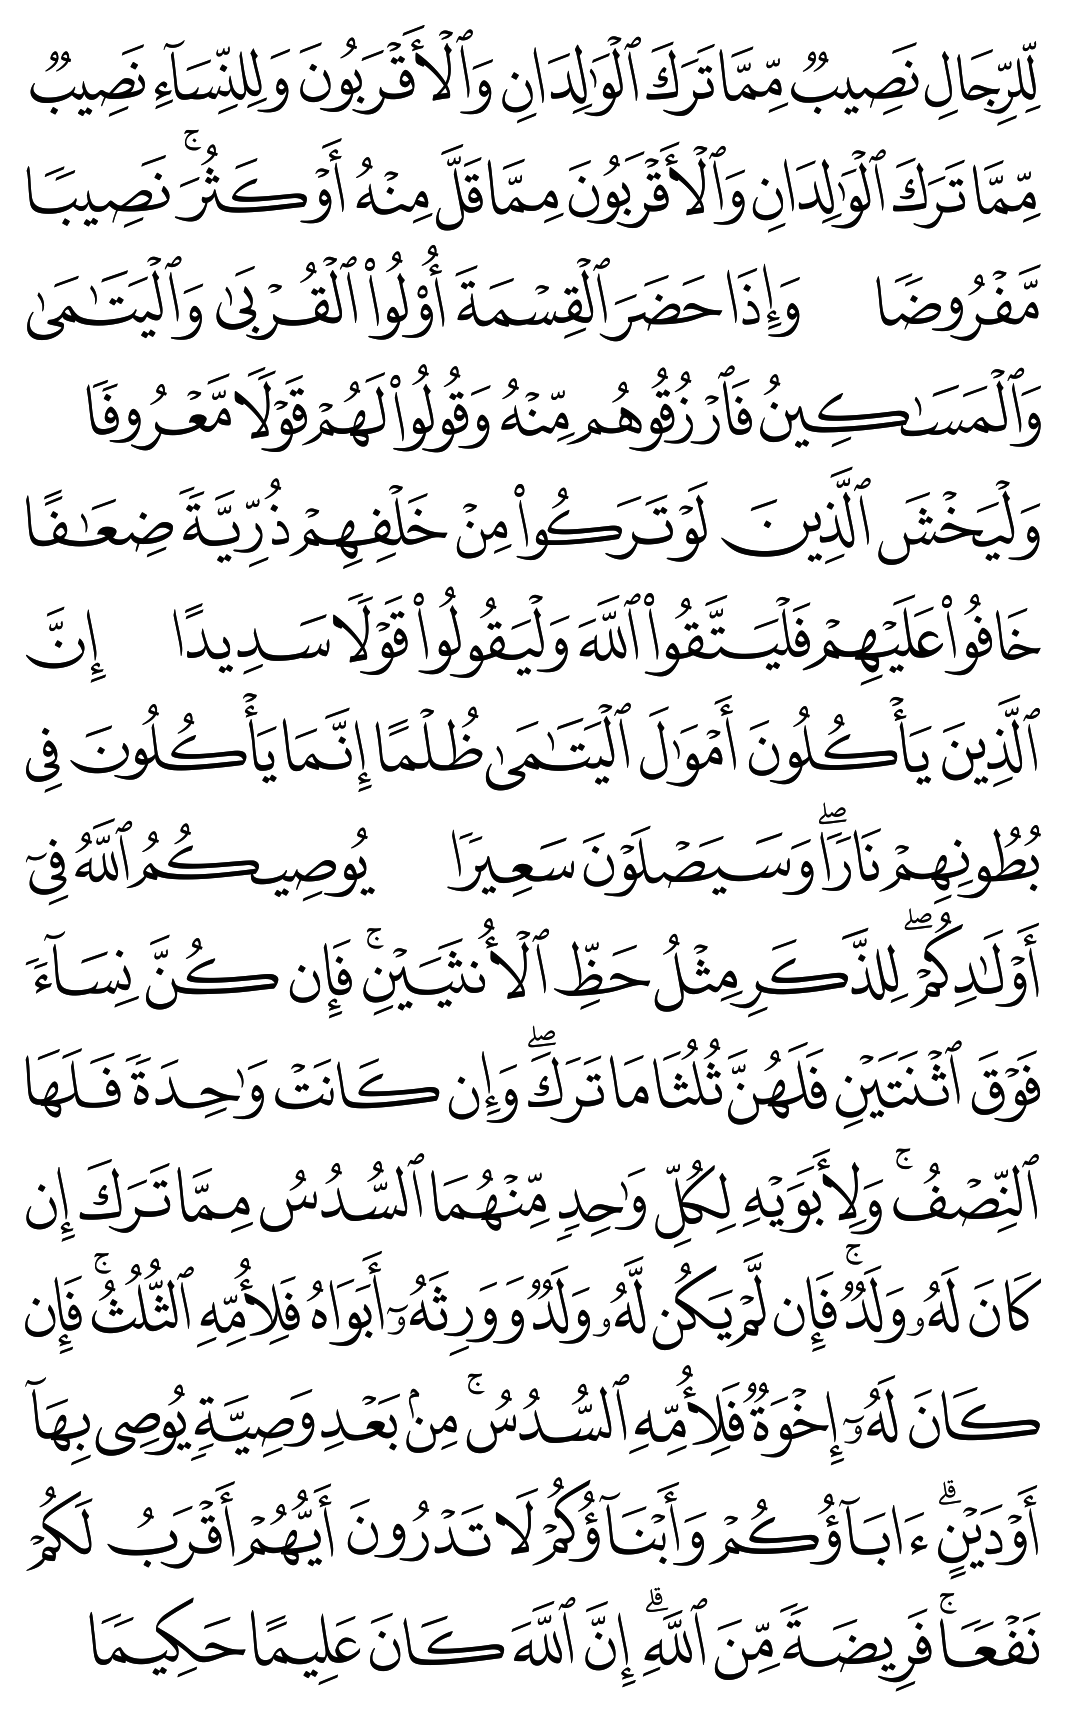 لِّلرِّجَالِ نَصِيبٌ مِّمَّا تَرَكَ ٱلْوَٰلِدَانِ وَٱلْأَقْرَبُونَ وَلِلنِّسَآءِ نَصِيبٌ
مِّمَّا تَرَكَ ٱلْوَٰلِدَانِ وَٱلْأَقْرَبُونَ مِمَّا قَلَّ مِنْهُ أَوْ كَثُرَ ۚ نَصِيبًا
مَّفْرُوضًا وَإِذَا حَضَرَ ٱلْقِسْمَةَ أُو۟لُوا۟ ٱلْقُرْبَىٰ وَٱلْيَتَـٰمَىٰ
وَٱلْمَسَـٰكِينُ فَٱرْزُقُوهُم مِّنْهُ وَقُولُوا۟ لَهُمْ قَوْلًا مَّعْرُوفًا
وَلْيَخْشَ ٱلَّذِينَ لَوْ تَرَكُوا۟ مِنْ خَلْفِهِمْ ذُرِّيَّةً ضِعَـٰفًا
خَافُوا۟ عَلَيْهِمْ فَلْيَتَّقُوا۟ ٱللَّهَ وَلْيَقُولُوا۟ قَوْلًا سَدِيدًا إِنَّ
ٱلَّذِينَ يَأْكُلُونَ أَمْوَٰلَ ٱلْيَتَـٰمَىٰ ظُلْمًا إِنَّمَا يَأْكُلُونَ فِى
بُطُونِهِمْ نَارًا ۖ وَسَيَصْلَوْنَ سَعِيرًا يُوصِيكُمُ ٱللَّهُ فِىٓ
أَوْلَـٰدِكُمْ ۖ لِلذَّكَرِ مِثْلُ حَظِّ ٱلْأُنثَيَيْنِ ۚ فَإِن كُنَّ نِسَآءً
فَوْقَ ٱثْنَتَيْنِ فَلَهُنَّ ثُلُثَا مَا تَرَكَ ۖ وَإِن كَانَتْ وَٰحِدَةً فَلَهَا
ٱلنِّصْفُ ۚ وَلِأَبَوَيْهِ لِكُلِّ وَٰحِدٍ مِّنْهُمَا ٱلسُّدُسُ مِمَّا تَرَكَ إِن
كَانَ لَهُۥ وَلَدٌ ۚ فَإِن لَّمْ يَكُن لَّهُۥ وَلَدٌ وَوَرِثَهُۥٓ أَبَوَاهُ فَلِأُمِّهِ ٱلثُّلُثُ ۚ فَإِن
كَانَ لَهُۥٓ إِخْوَةٌ فَلِأُمِّهِ ٱلسُّدُسُ ۚ مِنۢ بَعْدِ وَصِيَّةٍ يُوصِى بِهَآ
أَوْ دَيْنٍ ۗ ءَابَآؤُكُمْ وَأَبْنَآؤُكُمْ لَا تَدْرُونَ أَيُّهُمْ أَقْرَبُ لَكُمْ
نَفْعًا ۚ فَرِيضَةً مِّنَ ٱللَّهِ ۗ إِنَّ ٱللَّهَ كَانَ عَلِيمًا حَكِيمًا